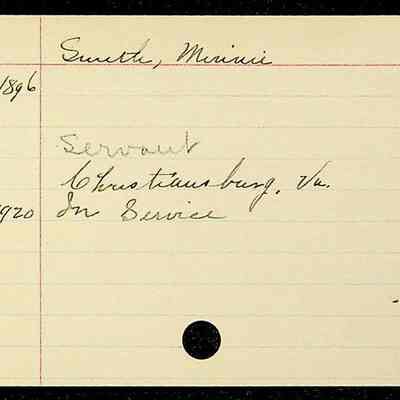 Smith, Minnie
1896
Servant
Christiansburg, Va.
1920 In Service